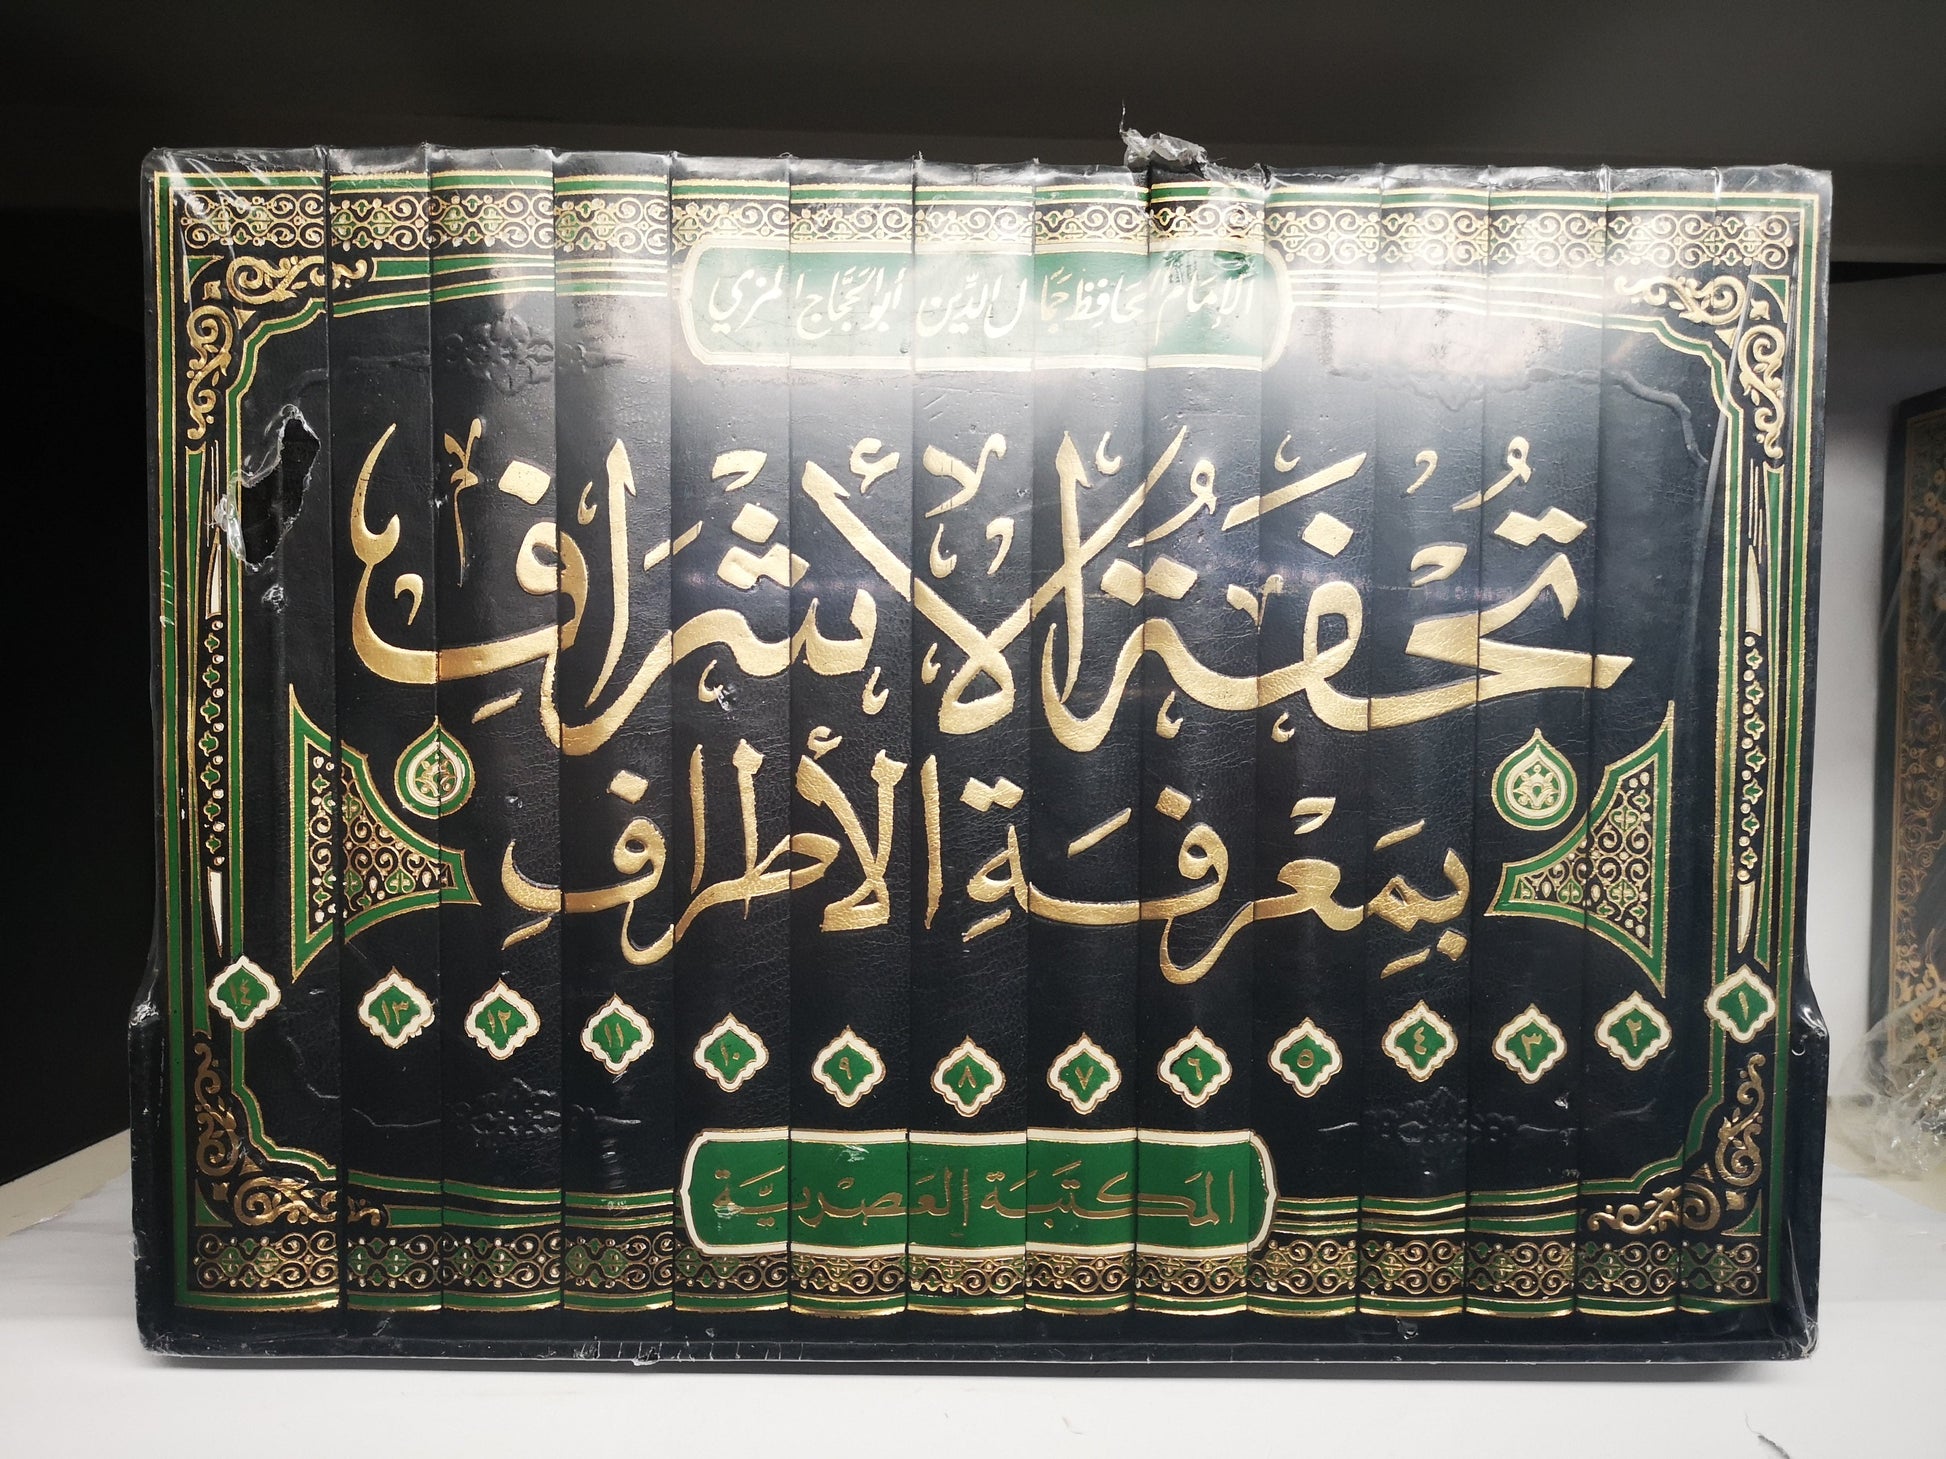 الإمام الحافظ جمال الدين أبو الحجاج المزي
تُحْفَةُ الْأَشْرَافِ
بِمَعْرِفَةِ الأَطْرَافِ
١ ٢ ٣ ٤ ٥ ٦ ٧ ٨ ٩ ١٠ ١١ ١٢ ١٣ ١٤
المَكتَبَة العَصْرِيَّة